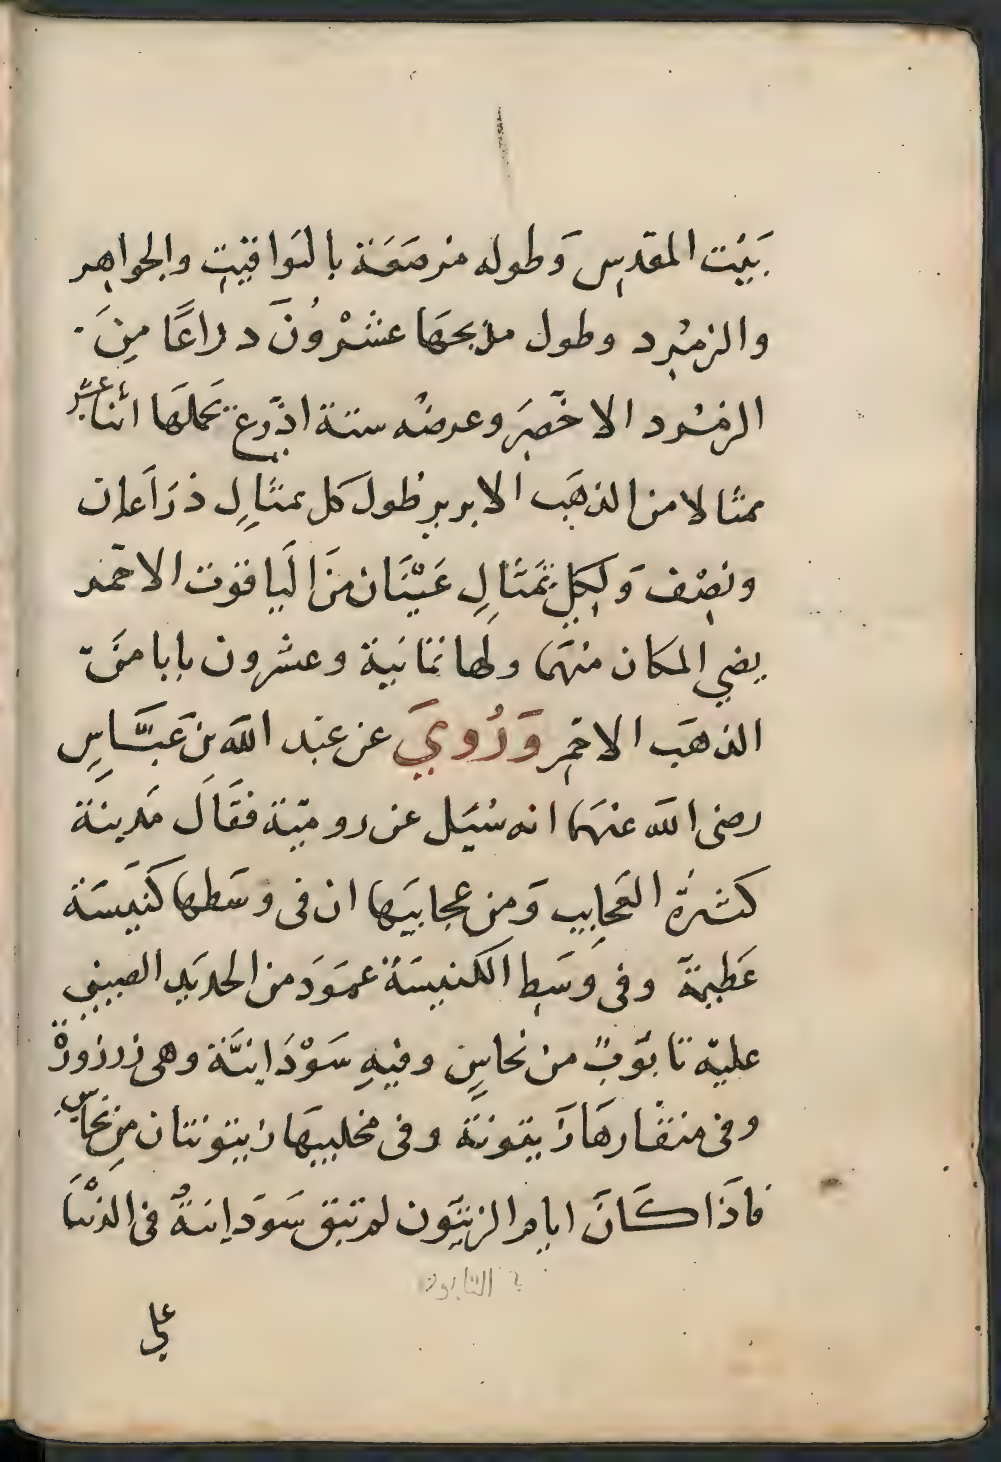 بَيْت المقدس وَطوله مرصَعَة باليَواقيت والجواهر
والزمرد وطول مذبحهَا عشْرُونَ دراعًا مِنَ
الزمُرد الاخضَر وعرضُه ستة اذرع تحملهَا اثنا عشر
تمثالا من الذهَب الابريز طول كل تمثالٍ ذرَاعان
ونِصْف وَلِكلِ تمثَالِ عَيْنَان مَن اليَاقوت الاحمَر
يضي المكان منهَما ولها ثمَانيَة وعشرون بابا منَ
الذهَب الاحمر وَرُويَ عن عبد الله بن عَبَّاسٍ
رضى الله عنهَما انه سُئيل عن روميّة فقَالَ مَدينة
كثيرةُ العَجايب وَمن عجايبَها ان فى وسَطها كَنيسَة
عَظيمَة وفى وسَطِ الكنيسَة عمَود من الحدَيد الصينى
عليه تابَوتٌ من نحاسٍ وفيهِ سَوْدَانيَّة وهى زرزورةٌ
وفى منقارهَا زَيتونة وفى مخلبيهَا زيتونتان مِن نحاسٍ
فاذَا كَانَ ايام الزيتَون لم تبق سَودَانيةٌ فى الدنْيَا
التابوت
على